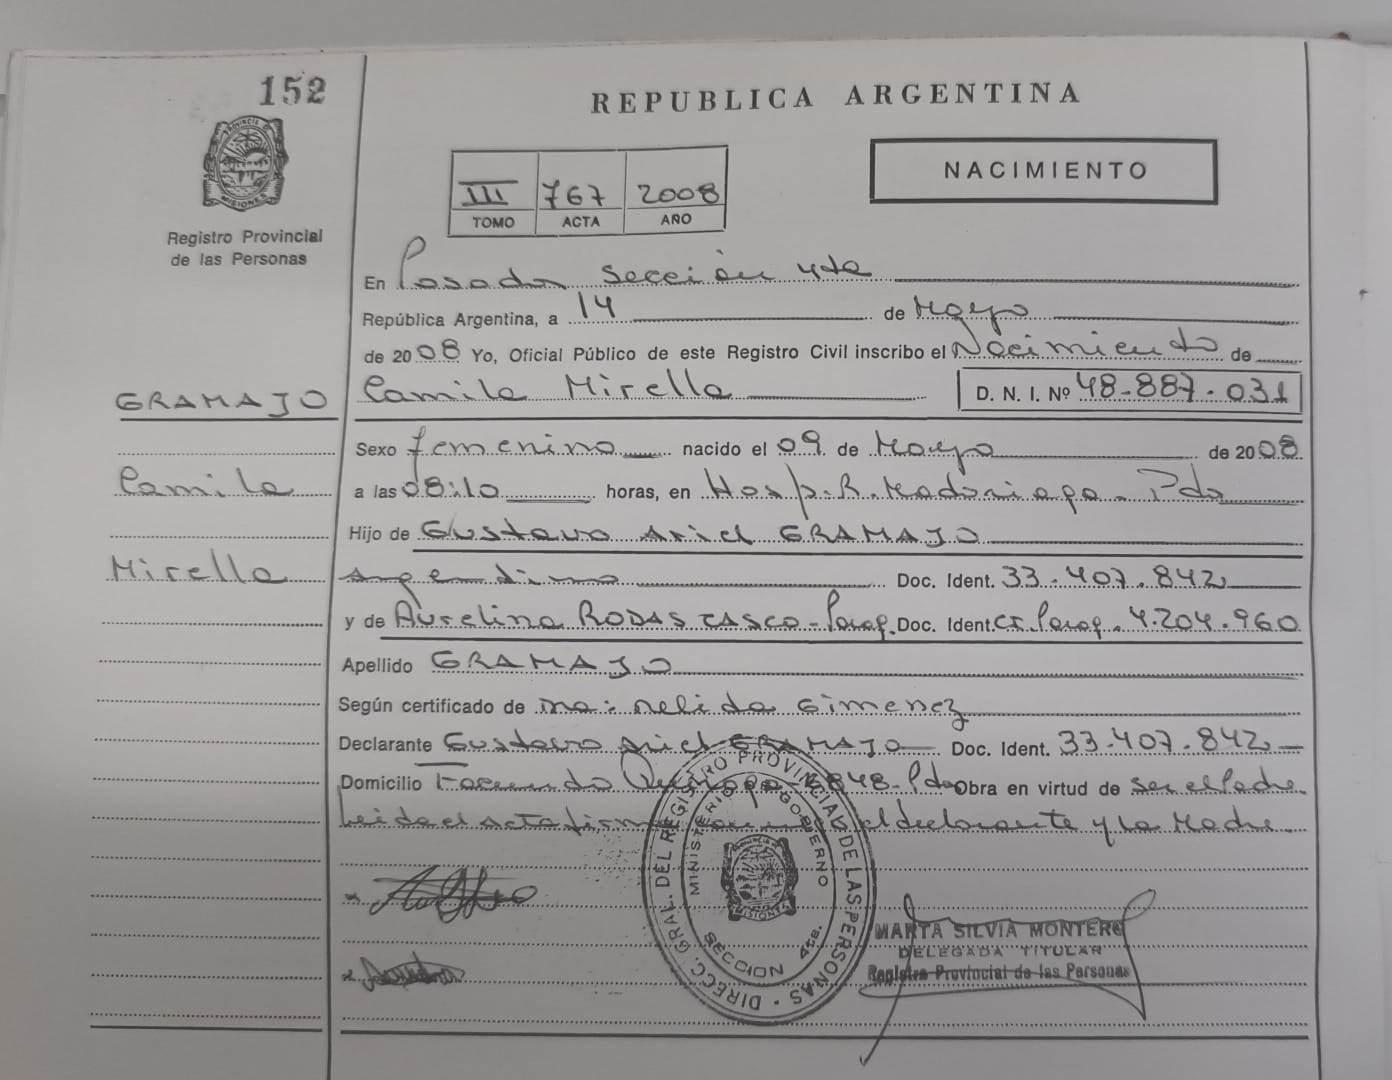 152
REPUBLICA ARGENTINA
PROVINCIA D
MISIONES
NACIMIENTO
III 767 2008
TOMO ACTA AÑO
Registro Provincial
de las Personas
En Posadas Sección 4ta
República Argentina, a 14 de Mayo
de 2008 Yo, Oficial Público de este Registro Civil inscribo el Nacimiento de
GRAMAJO Camila Mirella D. N. I. Nº 48-887-031
Sexo femenino nacido el 09 de Mayo de 2008
Camila a las 08:10 horas, en Hosp. R. Madariaga - Pdas
Hijo de Gustavo Ariel GRAMAJO
Mirella Argentino Doc. Ident. 33.407.842
y de Aurelina RODAS CASCO - Parag. Doc. Ident. CI. Parag. 4.204.960
Apellido GRAMAJO
Según certificado de ma: nelida Gimenez
Declarante Gustavo Ariel GRAMAJO Doc. Ident. 33.407.842
Domicilio Facundo 848 - Pdas Obra en virtud de Ser el Padre
Leida el Acta firma el declarante y la Madre
DIRECC. GRAL. DEL REGISTRO PROVINCIAL DE LAS PERSONAS
MINISTERIO GOBIERNO
MISIONES
SECCION 4ta.
MARTA SILVIA MONTERO
DELEGADA TITULAR
Registro Provincial de las Personas